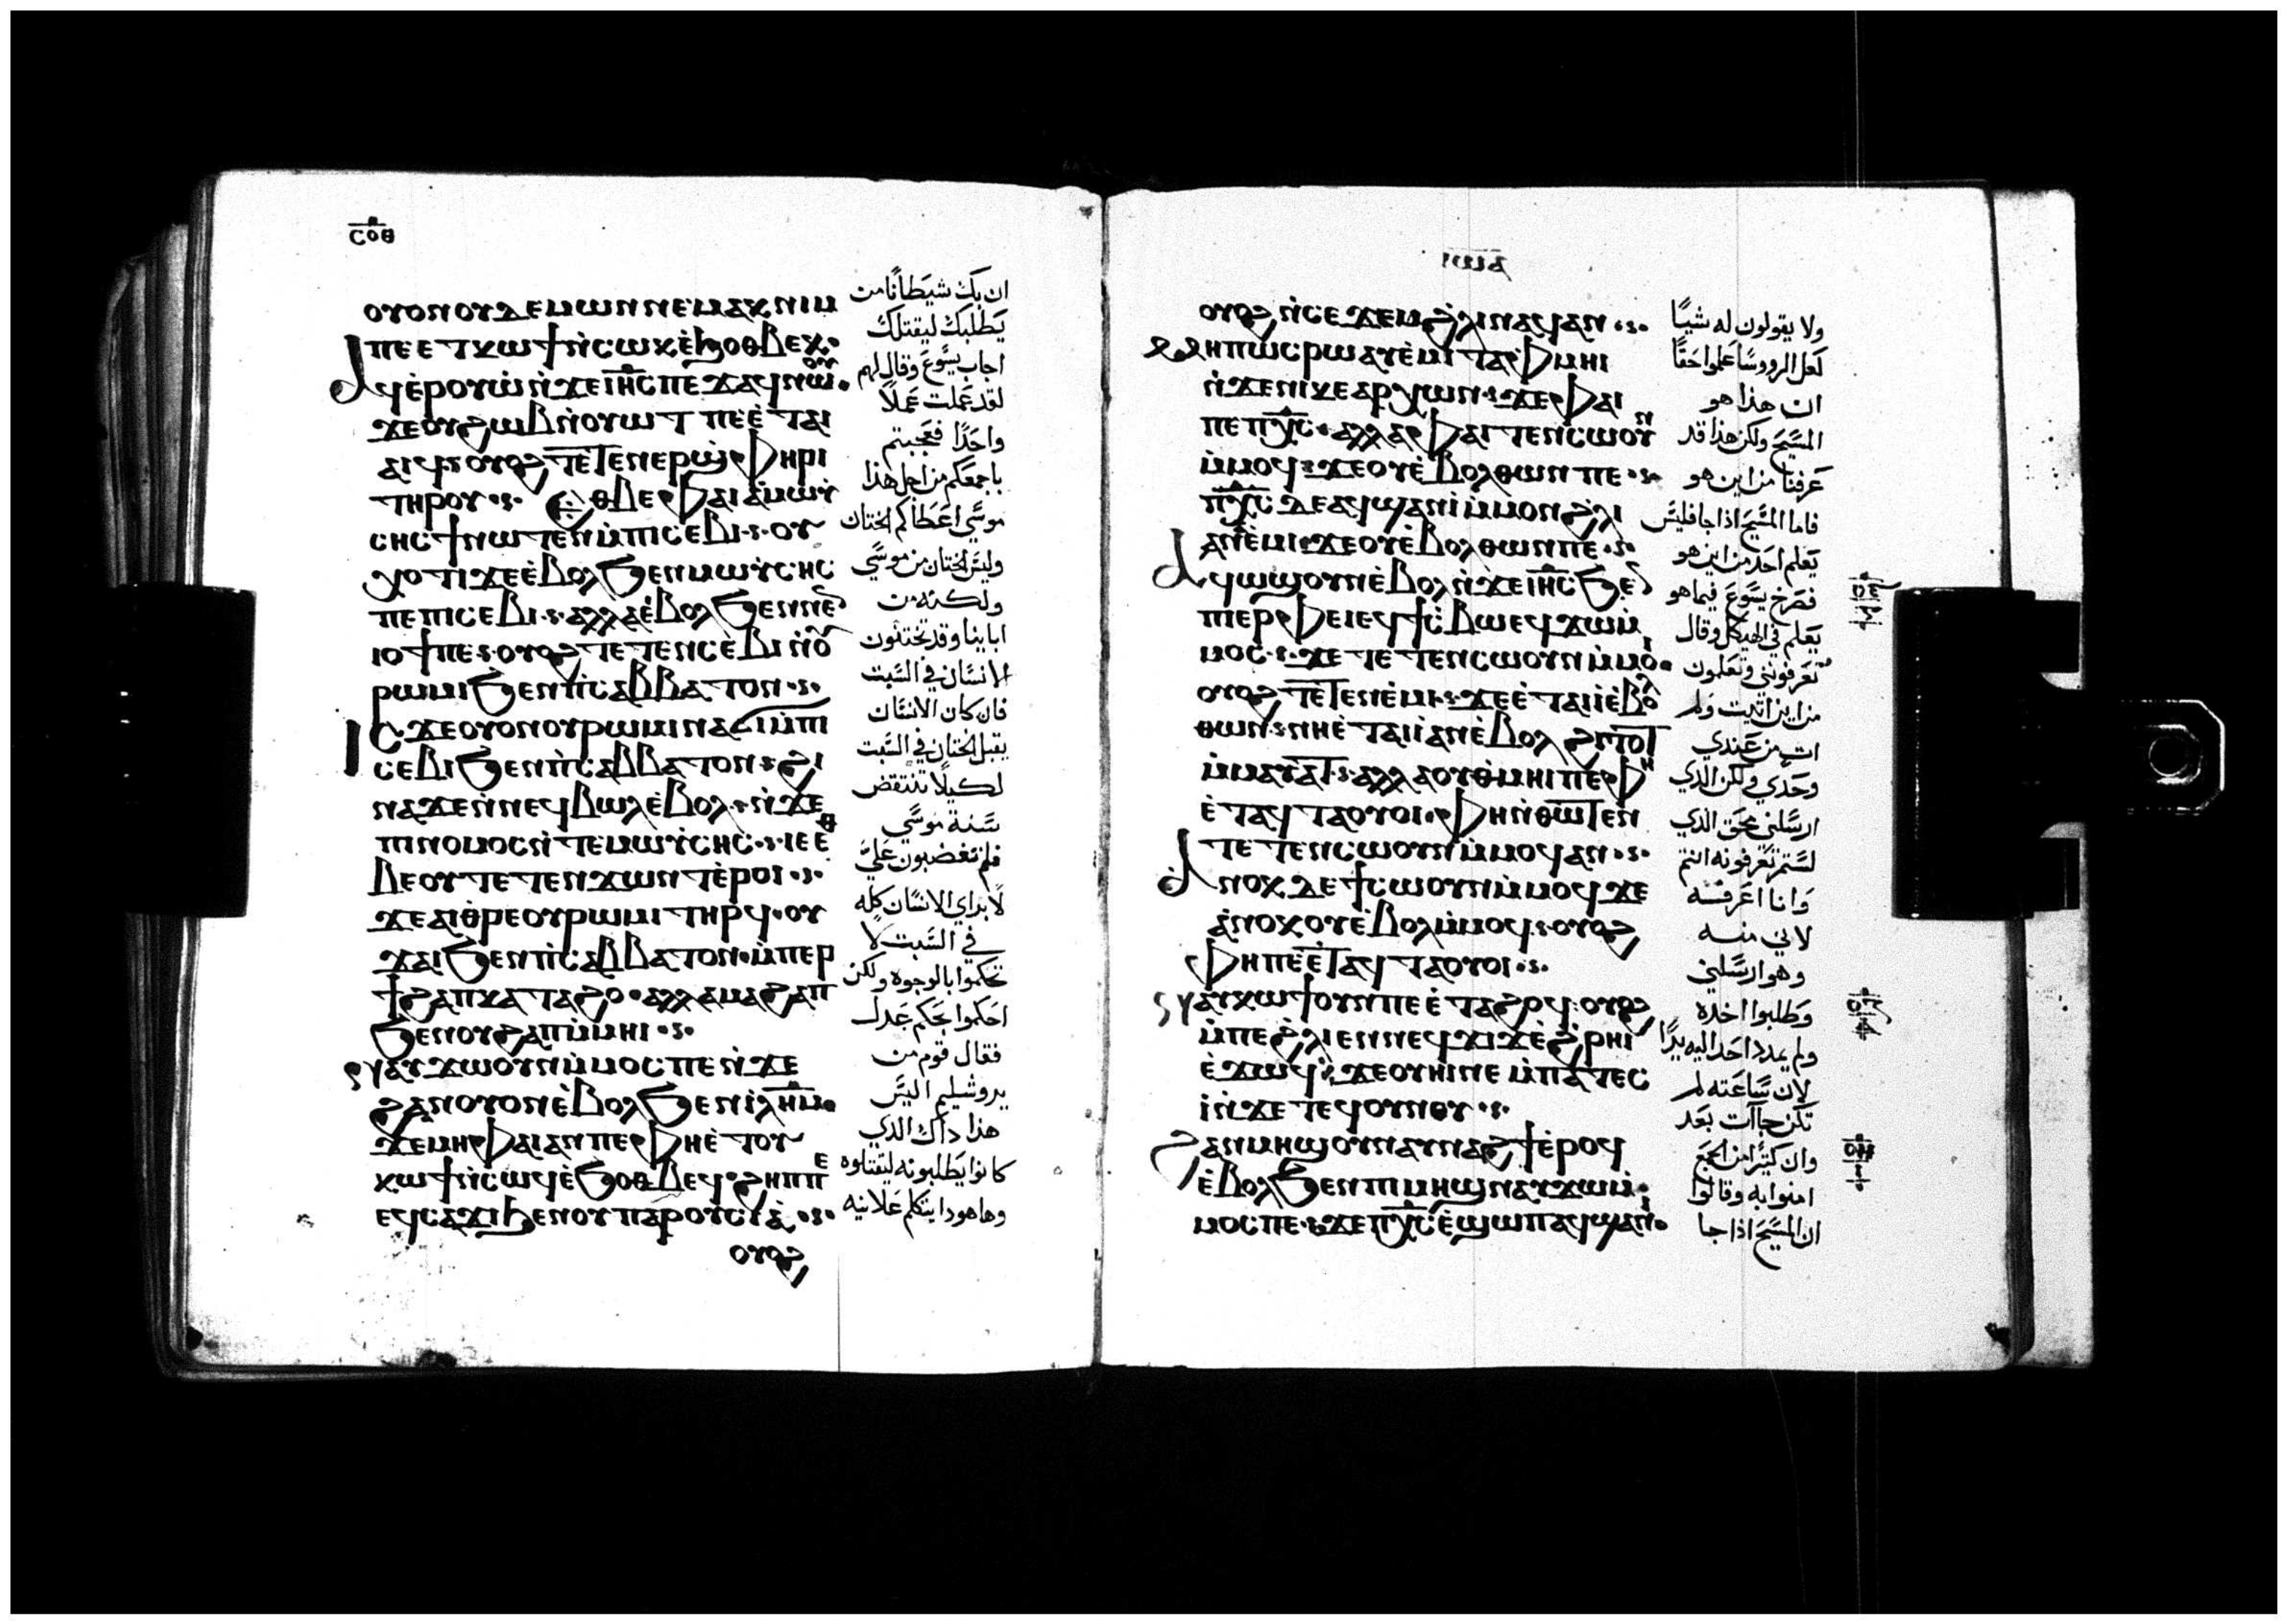 ⲥⲟⲑ
ⲟⲩⲟⲛ ⲟⲩⲇⲉⲙⲱⲛ ⲛⲉⲙⲁⲕ ⲛⲓⲙ
ⲡⲉⲉⲧⲕⲱϯ ⲛ̀ⲥⲱⲕ ⲉ̀ϧⲟⲑⲃⲉⲕ
ⲁϥⲉ̀ⲣⲟⲩⲱ̀ ⲛ̀ϫⲉ ⲓⲏ̅ⲥ̅ ⲡⲉϫⲁϥ ⲛⲱⲟⲩ
ϫⲉ ⲟⲩϩⲱⲃ ⲛ̀ⲟⲩⲱⲧ ⲡⲉⲉ̀ⲧⲁⲓ
ⲁⲓϥ ⲟⲩⲟϩ ⲧⲉⲧⲉⲛⲉⲣϣⲫⲏⲣⲓ
ⲧⲏⲣⲟⲩ ⲉⲑⲃⲉ ⲫⲁⲓ ⲁ̀ⲙⲱⲩ̀
ⲥⲏⲥ ϯ ⲛⲱⲧⲉⲛ ⲙ̀ⲡⲓⲥⲉⲃⲓ ⲟⲩ
ⲭⲟⲧⲓ ϫⲉ ⲉ̀ⲃⲟⲗ ϧⲉⲛ ⲙⲱⲩ̀ⲥⲏⲥ
ⲡⲉ ⲡⲓⲥⲉⲃⲓ ⲁⲗⲗⲁ ⲉ̀ⲃⲟⲗ ϧⲉⲛ ⲛⲉ
ⲓⲟϯ ⲡⲉ ⲟⲩⲟϩ ⲧⲉⲧⲉⲛⲥⲉⲃⲓ ⲛ̀ⲟⲩ
ⲣⲱⲙⲓ ϧⲉⲛ ⲡ̀ⲥⲁⲃⲃⲁⲧⲟⲛ
ⲓⲥϫⲉ ⲟⲩⲟⲛ ⲟⲩⲣⲱⲙⲓ ⲛⲁϭⲓ ⲙ̀ⲡⲓ
ⲥⲉⲃⲓ ϧⲉⲛ ⲡ̀ⲥⲁⲃⲃⲁⲧⲟⲛ ϩⲓ
ⲛⲁ ϫⲉ ⲛ̀ⲛⲉϥⲃⲱⲗ ⲉ̀ⲃⲟⲗ ⲛ̀ϫⲉ
ⲡⲓⲛⲟⲙⲟⲥ ⲛ̀ⲧⲉ ⲙⲱⲩ̀ⲥⲏⲥ ⲓⲉ ⲉⲑ
ⲃⲉⲟⲩ ⲧⲉⲧⲉⲛϫⲱⲛⲧ ⲉ̀ⲣⲟⲓ
ϫⲉ ⲁⲓⲑⲣⲉ ⲟⲩⲣⲱⲙⲓ ⲧⲏⲣϥ ⲟⲩ
ϫⲁⲓ ϧⲉⲛ ⲡ̀ⲥⲁⲃⲃⲁⲧⲟⲛ ⲙ̀ⲡⲉⲣ
ϯϩⲁⲡ ⲕⲁⲧⲁ ϩⲟ ⲁⲗⲗⲁ ⲙⲁϩⲁⲡ
ϧⲉⲛ ⲟⲩϩⲁⲡ ⲙ̀ⲙⲏⲓ
ⲛⲁⲩϫⲱ ⲟⲩⲛ ⲙ̀ⲙⲟⲥ ⲡⲉ ⲛ̀ϫⲉ
ϩⲁⲛⲟⲩⲟⲛ ⲉ̀ⲃⲟⲗ ϧⲉⲛ ⲓ̀ⲗⲏ̅ⲙ̅
ϫⲉ ⲙⲏ ⲫⲁⲓ ⲁⲛ ⲡⲉ ⲫⲏ ⲉ̀ⲧⲟⲩ
ⲕⲱϯ ⲛ̀ⲥⲱϥ ⲉ̀ϧⲟⲑⲃⲉϥ ϩⲏⲡⲡⲉ
ⲉϥⲥⲁϫⲓ ϧⲉⲛ ⲟⲩⲡⲁⲣⲟⲩⲥⲓⲁ̀
ⲟⲩⲟϩ
ان بك شيطانا من
يطلبك ليقتلك
اجاب يسوع وقال لهم
لقد عملت عملا
واحدا فعجبتم
باجمعكم من اجل هذا
موسى اعطاكم الختان
وليس الختان من موسي
ولكنه من
اباينا وقد تختنون
الانسان في السبت
فان كان الانسان
يقبل الختان في السبت
لكيلا تنتقض
سنة موسي
فلم تغضبون علي
لابراي الانسان كله
في السبت لا
تحكموا بالوجوه ولكن
احكموا بحكم عدل
فقال قوم من
يروشليم اليس
هذا داك الذي
كانوا يطلبونه ليقتلوه
وهاهودا يتكلم علانيه
ⲟⲩⲟϩ ⲛ̀ⲥⲉϫⲉⲙ ϩ̀ⲗⲓ ⲛⲁϥ ⲁⲛ
ⲙⲏⲡⲱⲥ ⲣⲱ ⲁⲩⲉ̀ⲙⲓ ⲧⲁⲫⲙⲏⲓ
ⲛ̀ϫⲉ ⲛⲓⲭⲉⲁⲣⲭⲱⲛ ϫⲉ ⲫⲁⲓ
ⲡⲉ ⲡⲭ̅ⲥ̅ ⲁⲗⲗⲁ ⲫⲁⲓ ⲧⲉⲛⲥⲱⲟⲩⲛ
ⲙ̀ⲙⲟϥ ϫⲉ ⲟⲩⲉ̀ⲃⲟⲗ ⲑⲱⲛ ⲡⲉ
ⲡⲭ̅ⲥ̅ ⲇⲉ ⲁϥϣⲁⲛⲓ̀ ⲙ̀ⲙⲟⲛ ϩ̀ⲗⲓ
ⲛⲁⲉ̀ⲙⲓ ϫⲉ ⲟⲩⲉ̀ⲃⲟⲗ ⲑⲱⲛ ⲡⲉ
ⲁϥⲱϣ ⲟⲩⲛ ⲉ̀ⲃⲟⲗ ⲛ̀ϫⲉ ⲓⲏ̅ⲥ̅ ϧⲉⲛ
ⲡⲓⲉⲣⲫⲉⲓ ⲉϥϯⲥ̀ⲃⲱ ⲉϥϫⲱ ⲙ̀
ⲙⲟⲥ ϫⲉ ⲧⲉⲧⲉⲛⲥⲱⲟⲩⲛ ⲙ̀ⲙⲟⲓ
ⲟⲩⲟϩ ⲧⲉⲧⲉⲛⲉ̀ⲙⲓ ϫⲉ ⲉ̀ⲧⲁⲓⲓ̀ ⲉ̀ⲃⲟⲗ
ⲑⲱⲛ ⲛⲏ ⲉ̀ⲧⲁⲓⲓ̀ ⲁⲛ ⲉ̀ⲃⲟⲗ ϩⲓⲧⲟⲧ
ⲙ̀ⲙⲁⲩⲁⲧ ⲁⲗⲗⲁ ⲟⲩⲑ̀ⲙⲏⲓ ⲡⲉ ⲫⲏ
ⲉ̀ⲧⲁϥⲧⲁⲟⲩⲟⲓ ⲫⲏ ⲛ̀ⲑⲱⲧⲉⲛ
ⲧⲉⲧⲉⲛⲥⲱⲟⲩⲛ ⲙ̀ⲙⲟϥ ⲁⲛ
ⲁⲛⲟⲕ ⲇⲉ ϯⲥⲱⲟⲩⲛ ⲙ̀ⲙⲟϥ ϫⲉ
ⲁ̀ⲛⲟⲕ ⲟⲩⲉ̀ⲃⲟⲗ ⲙ̀ⲙⲟϥ ⲟⲩⲟϩ
ⲫⲏ ⲡⲉ ⲉ̀ⲧⲁϥⲧⲁⲟⲩⲟⲓ
ⲛⲁⲩⲕⲱϯ ⲟⲩⲛ ⲡⲉ ⲉ̀ⲧⲁϩⲟϥ ⲟⲩⲟϩ
ⲙ̀ⲡⲉ ϩ̀ⲗⲓ ⲉⲛ ⲛⲉϥϫⲓϫ ⲉ̀ϩ̀ⲣⲏⲓ
ⲉ̀ϫⲱϥ ϫⲉ ⲟⲩⲏⲓ ⲛⲉ ⲙ̀ⲡⲁⲧⲉⲥ
ⲓ̀ ⲛ̀ϫⲉ ⲧⲉϥⲟⲩⲛⲟⲩ
ϩⲁⲛⲙⲏϣ ⲟⲩⲛ ⲁⲩⲛⲁϩϯ ⲉ̀ⲣⲟϥ
ⲉ̀ⲃⲟⲗ ϧⲉⲛ ⲡⲓⲙⲏϣ ⲛⲁⲩϫⲱ ⲙ̀
ⲙⲟⲥ ⲡⲉ ϫⲉ ⲡⲭ̅ⲥ̅ ⲉ̀ϣⲱⲡ ⲁϥϣⲁⲛⲓ̀
ولا يقولون له شيا
لعل الرووسا علموا حقا
ان هذا هو
المسيح ولكن هذا قد
عرفنا من اين هو
فاما المسيح اذا جا فليس
يعلم احد من اين هو
فصرخ يسوع فيما هو
يعلم في الهيكل وقال
تعرفونني وتعلمون
من اين اتيت ولم
ات من عندي
وحدي ولكن الذي
ارسلني محق الذي
لستم تعرفونه انتم
وانا اعرفه
لاني منه
وهو ارسلني
وطلبوا اخذه
ولم يمدد احد اليه يدا
لان ساعته لم
تكن جآات بعد
وان كثيرا من الجمع
امنوا به وقالوا
ان المسيح اذا جا